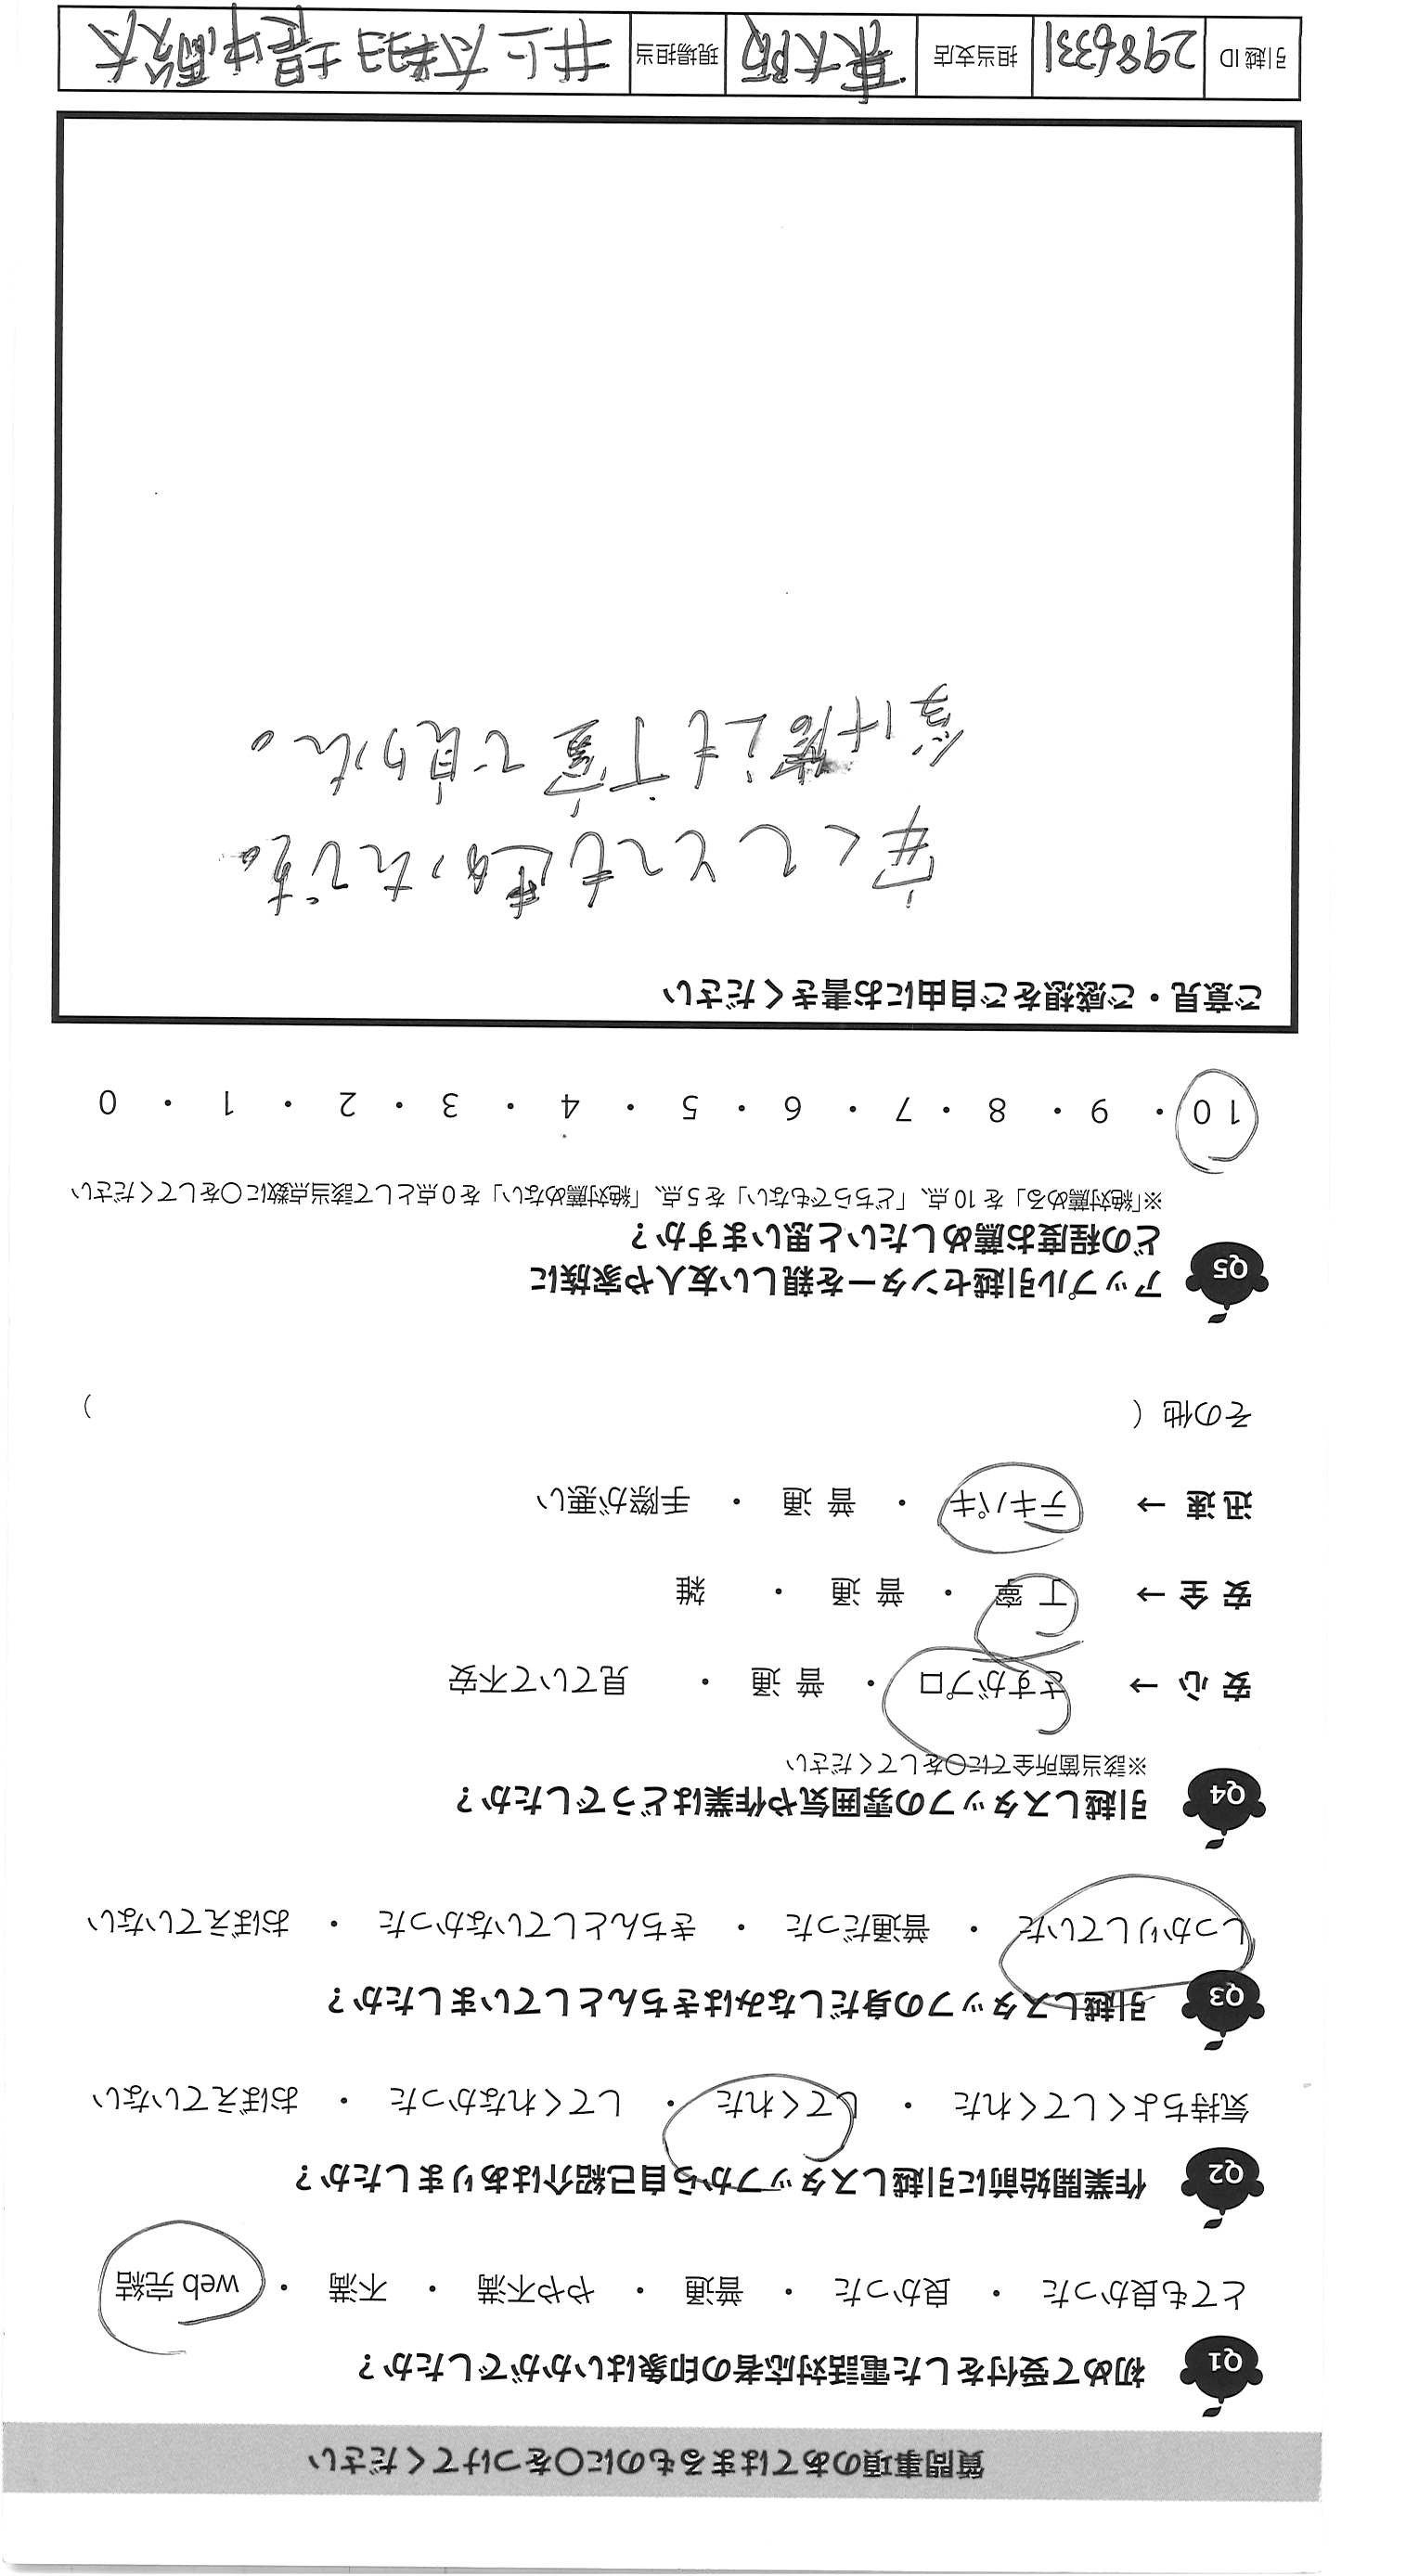 質問事項のあてはまるものに〇をつけてください
Q1 初めて受付をした電話対応者の印象はいかがでしたか？
とても良かった ・ 良かった ・ 普通 ・ やや不満 ・ 不満 ・ web 完結
Q2 作業開始前に引越しスタッフから自己紹介はありましたか？
気持ちよくしてくれた ・ してくれた ・ してくれなかった ・ おぼえていない
Q3 引越しスタッフの身だしなみはきちんとしていましたか？
しっかりしていた ・ 普通だった ・ きちんとしていなかった ・ おぼえていない
Q4 引越しスタッフの雰囲気や作業はどうでしたか？
※該当箇所全てに〇をしてください
安 心 → さすがプロ ・ 普 通 ・ 見ていて不安
安 全 → 丁 寧 ・ 普 通 ・ 雑
迅 速 → テキパキ ・ 普 通 ・ 手際が悪い
その他（ ）
Q5 アップル引越センターを親しい友人や家族に
どの程度お薦めしたいと思いますか？
※「絶対薦める」を 10 点、「どちらでもない」を 5 点、「絶対薦めない」を 0 点として該当点数に〇をしてください
10 ・ 9 ・ 8 ・ 7 ・ 6 ・ 5 ・ 4 ・ 3 ・ 2 ・ 1 ・ 0
ご意見・ご感想をご自由にお書きください
安くてとても良かったです。
も丁寧で良かった。
引越 ID 2986331 担当支店 東大阪 現場担当 井上